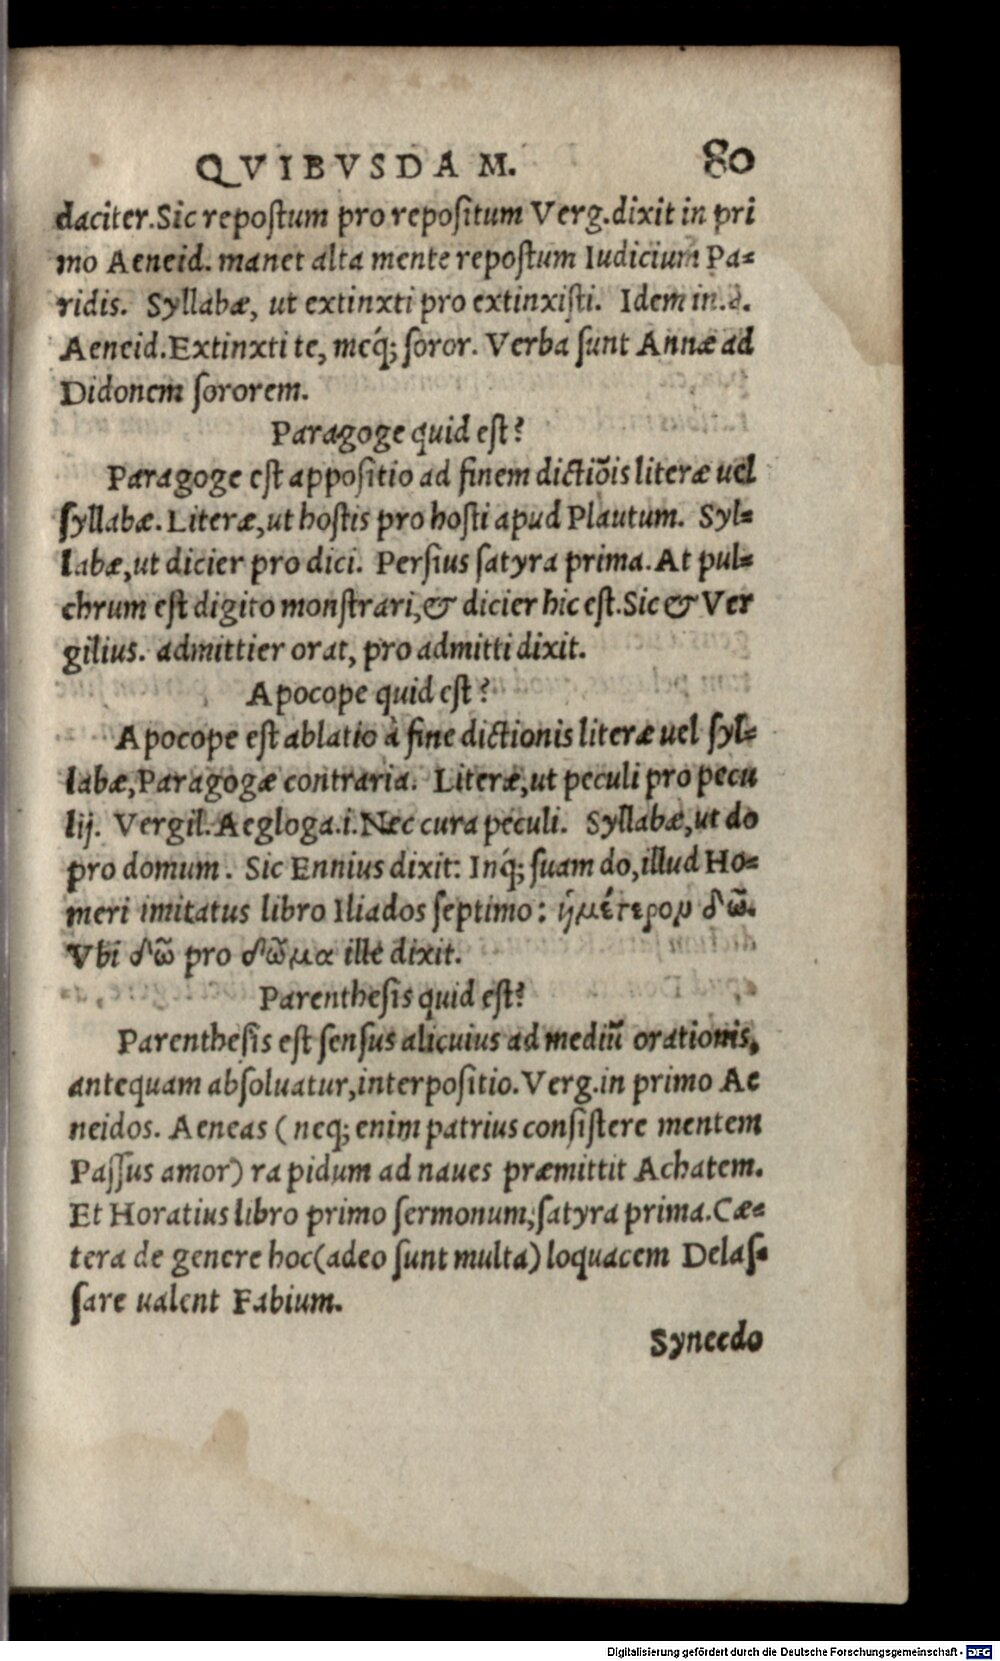 QVIBVSDAM. 80
daciter. Sic repostum pro repositum Verg. dixit in pri
mo Aeneid. manet alta mente repostum Iudicium Pa=
ridis. Syllabæ, ut extinxti pro extinxisti. Idem in.
Aeneid. Extinxti te, meq́; soror. Verba sunt Annæ ad
Didonem sororem.
Paragoge quid est?
Paragoge est appositio ad finem dictiõis literæ uel
syllabæ. Literæ, ut hostis pro hosti apud Plautum. Syl=
labæ, ut dicier pro dici. Persius satyra prima. At pul=
chrum est digito monstrari, & dicier hic est. Sic & Ver
gilius. admittier orat, pro admitti dixit.
Apocope quid est?
Apocope est ablatio à fine dictionis literæ uel syl=
labæ, Paragogæ contraria. Literæ, ut peculi pro pecu
lij. Vergil. Aegloga. i. Nec cura peculi. Syllabæ, ut do
pro domum. Sic Ennius dixit: Inq́; suam do, illud Ho=
meri imitatus libro Iliados septimo: ἡμέτερον δῶ.
Vbi δῶ pro δῶμα ille dixit.
Parenthesis quid est?
Parenthesis est sensus alicuius ad mediũ orationis,
antequam absoluatur, interpositio. Verg. in primo Ae
neidos. Aeneas (neq; enim patrius consistere mentem
Passus amor) rapidum ad naues præmittit Achatem.
Et Horatius libro primo sermonum, satyra prima. Cæ=
tera de genere hoc (adeo sunt multa) loquacem Delas=
sare ualent Fabium.
Synecdo
Digitalisierung gefördert durch die Deutsche Forschungsgemeinschaft - DFG